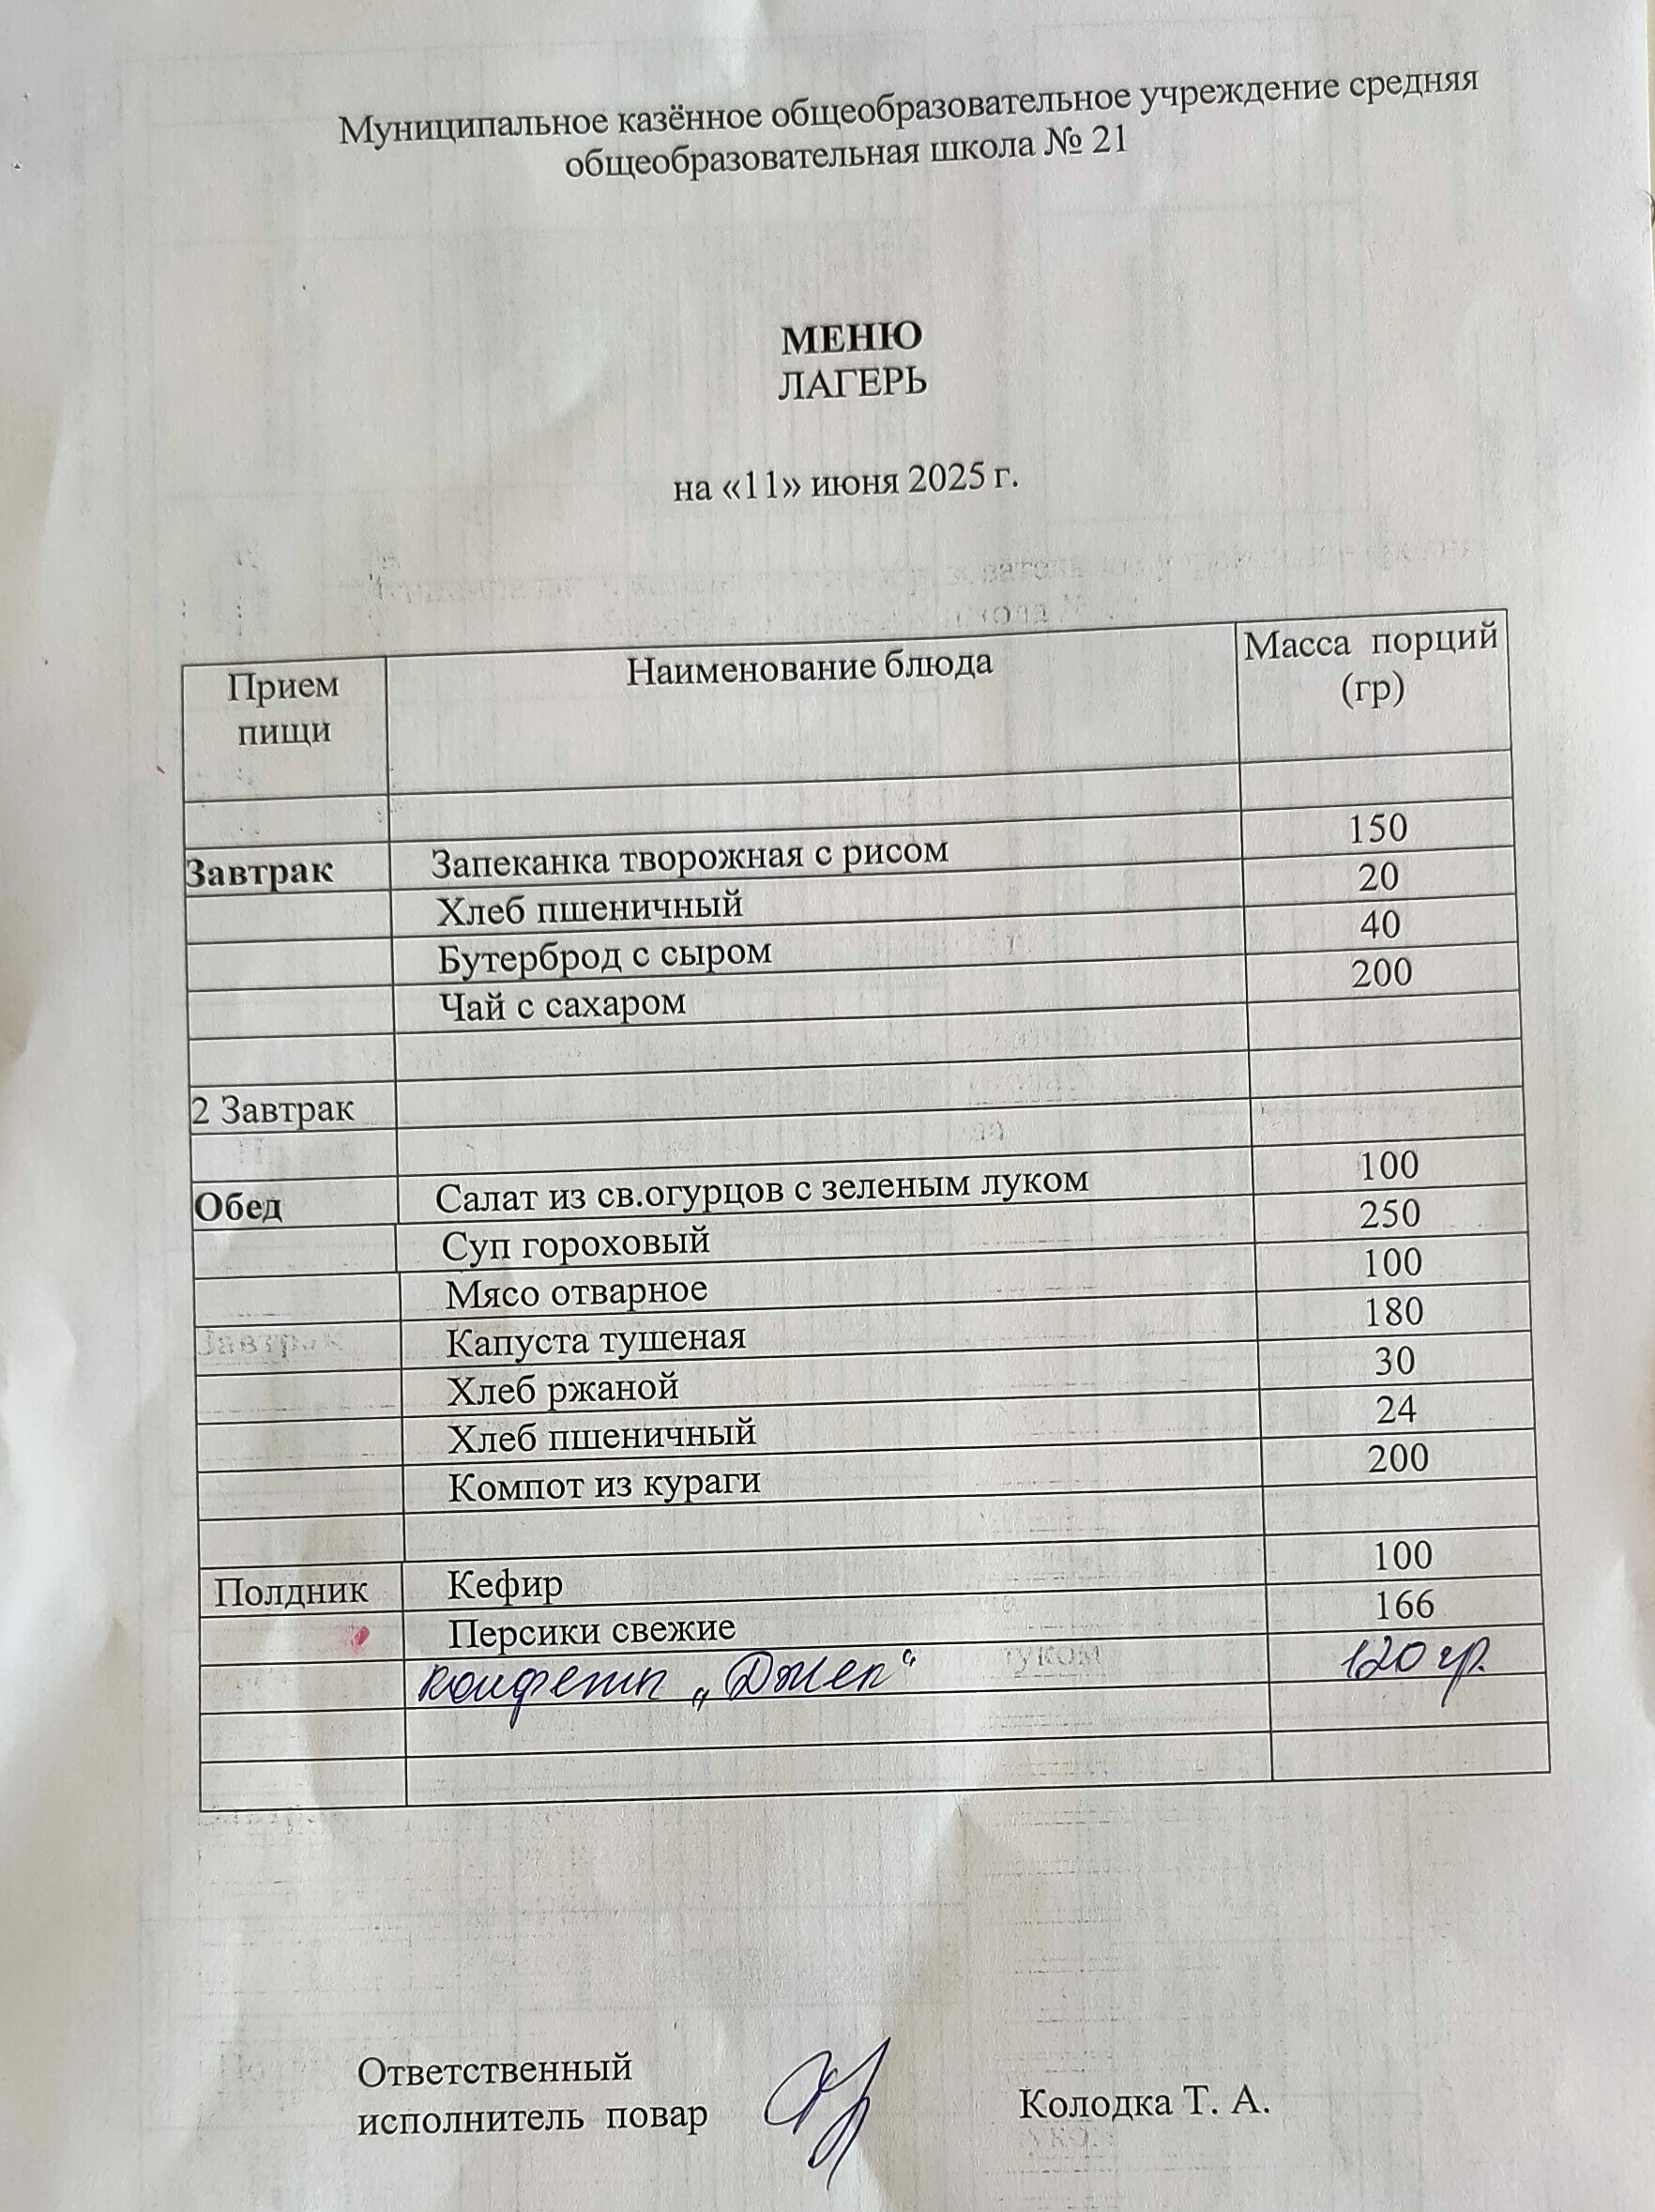 Муниципальное казённое общеобразовательное учреждение средняя
общеобразовательная школа № 21
МЕНЮ
ЛАГЕРЬ
на «11» июня 2025 г.
Прием пищи Наименование блюда Масса порций (гр)
Завтрак Запеканка творожная с рисом 150
Хлеб пшеничный 20
Бутерброд с сыром 40
Чай с сахаром 200
2 Завтрак
Обед Салат из св.огурцов с зеленым луком 100
Суп гороховый 250
Мясо отварное 100
Капуста тушеная 180
Хлеб ржаной 30
Хлеб пшеничный 24
Компот из кураги 200
Полдник Кефир 100
Персики свежие 166
120 гр.
Ответственный
исполнитель повар Колодка Т. А.